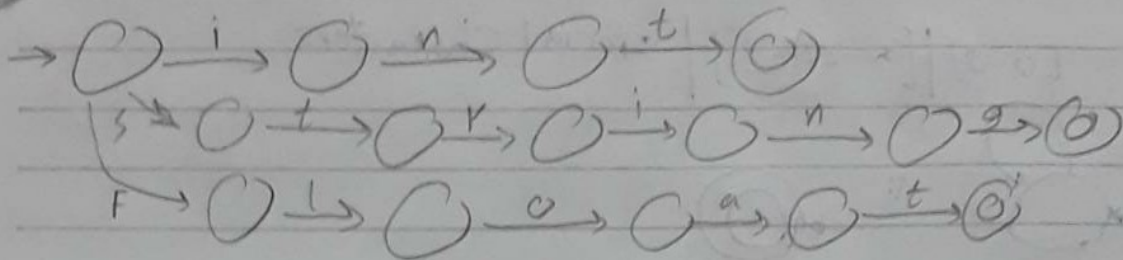 i n t
s t r i n g
F l o a t